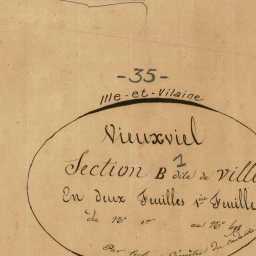 -35-
Ille-et-Vilaine
Vieuxviel
Section B 1 dite de ville
En deux Feuilles 1re Feuille
du N° au N°